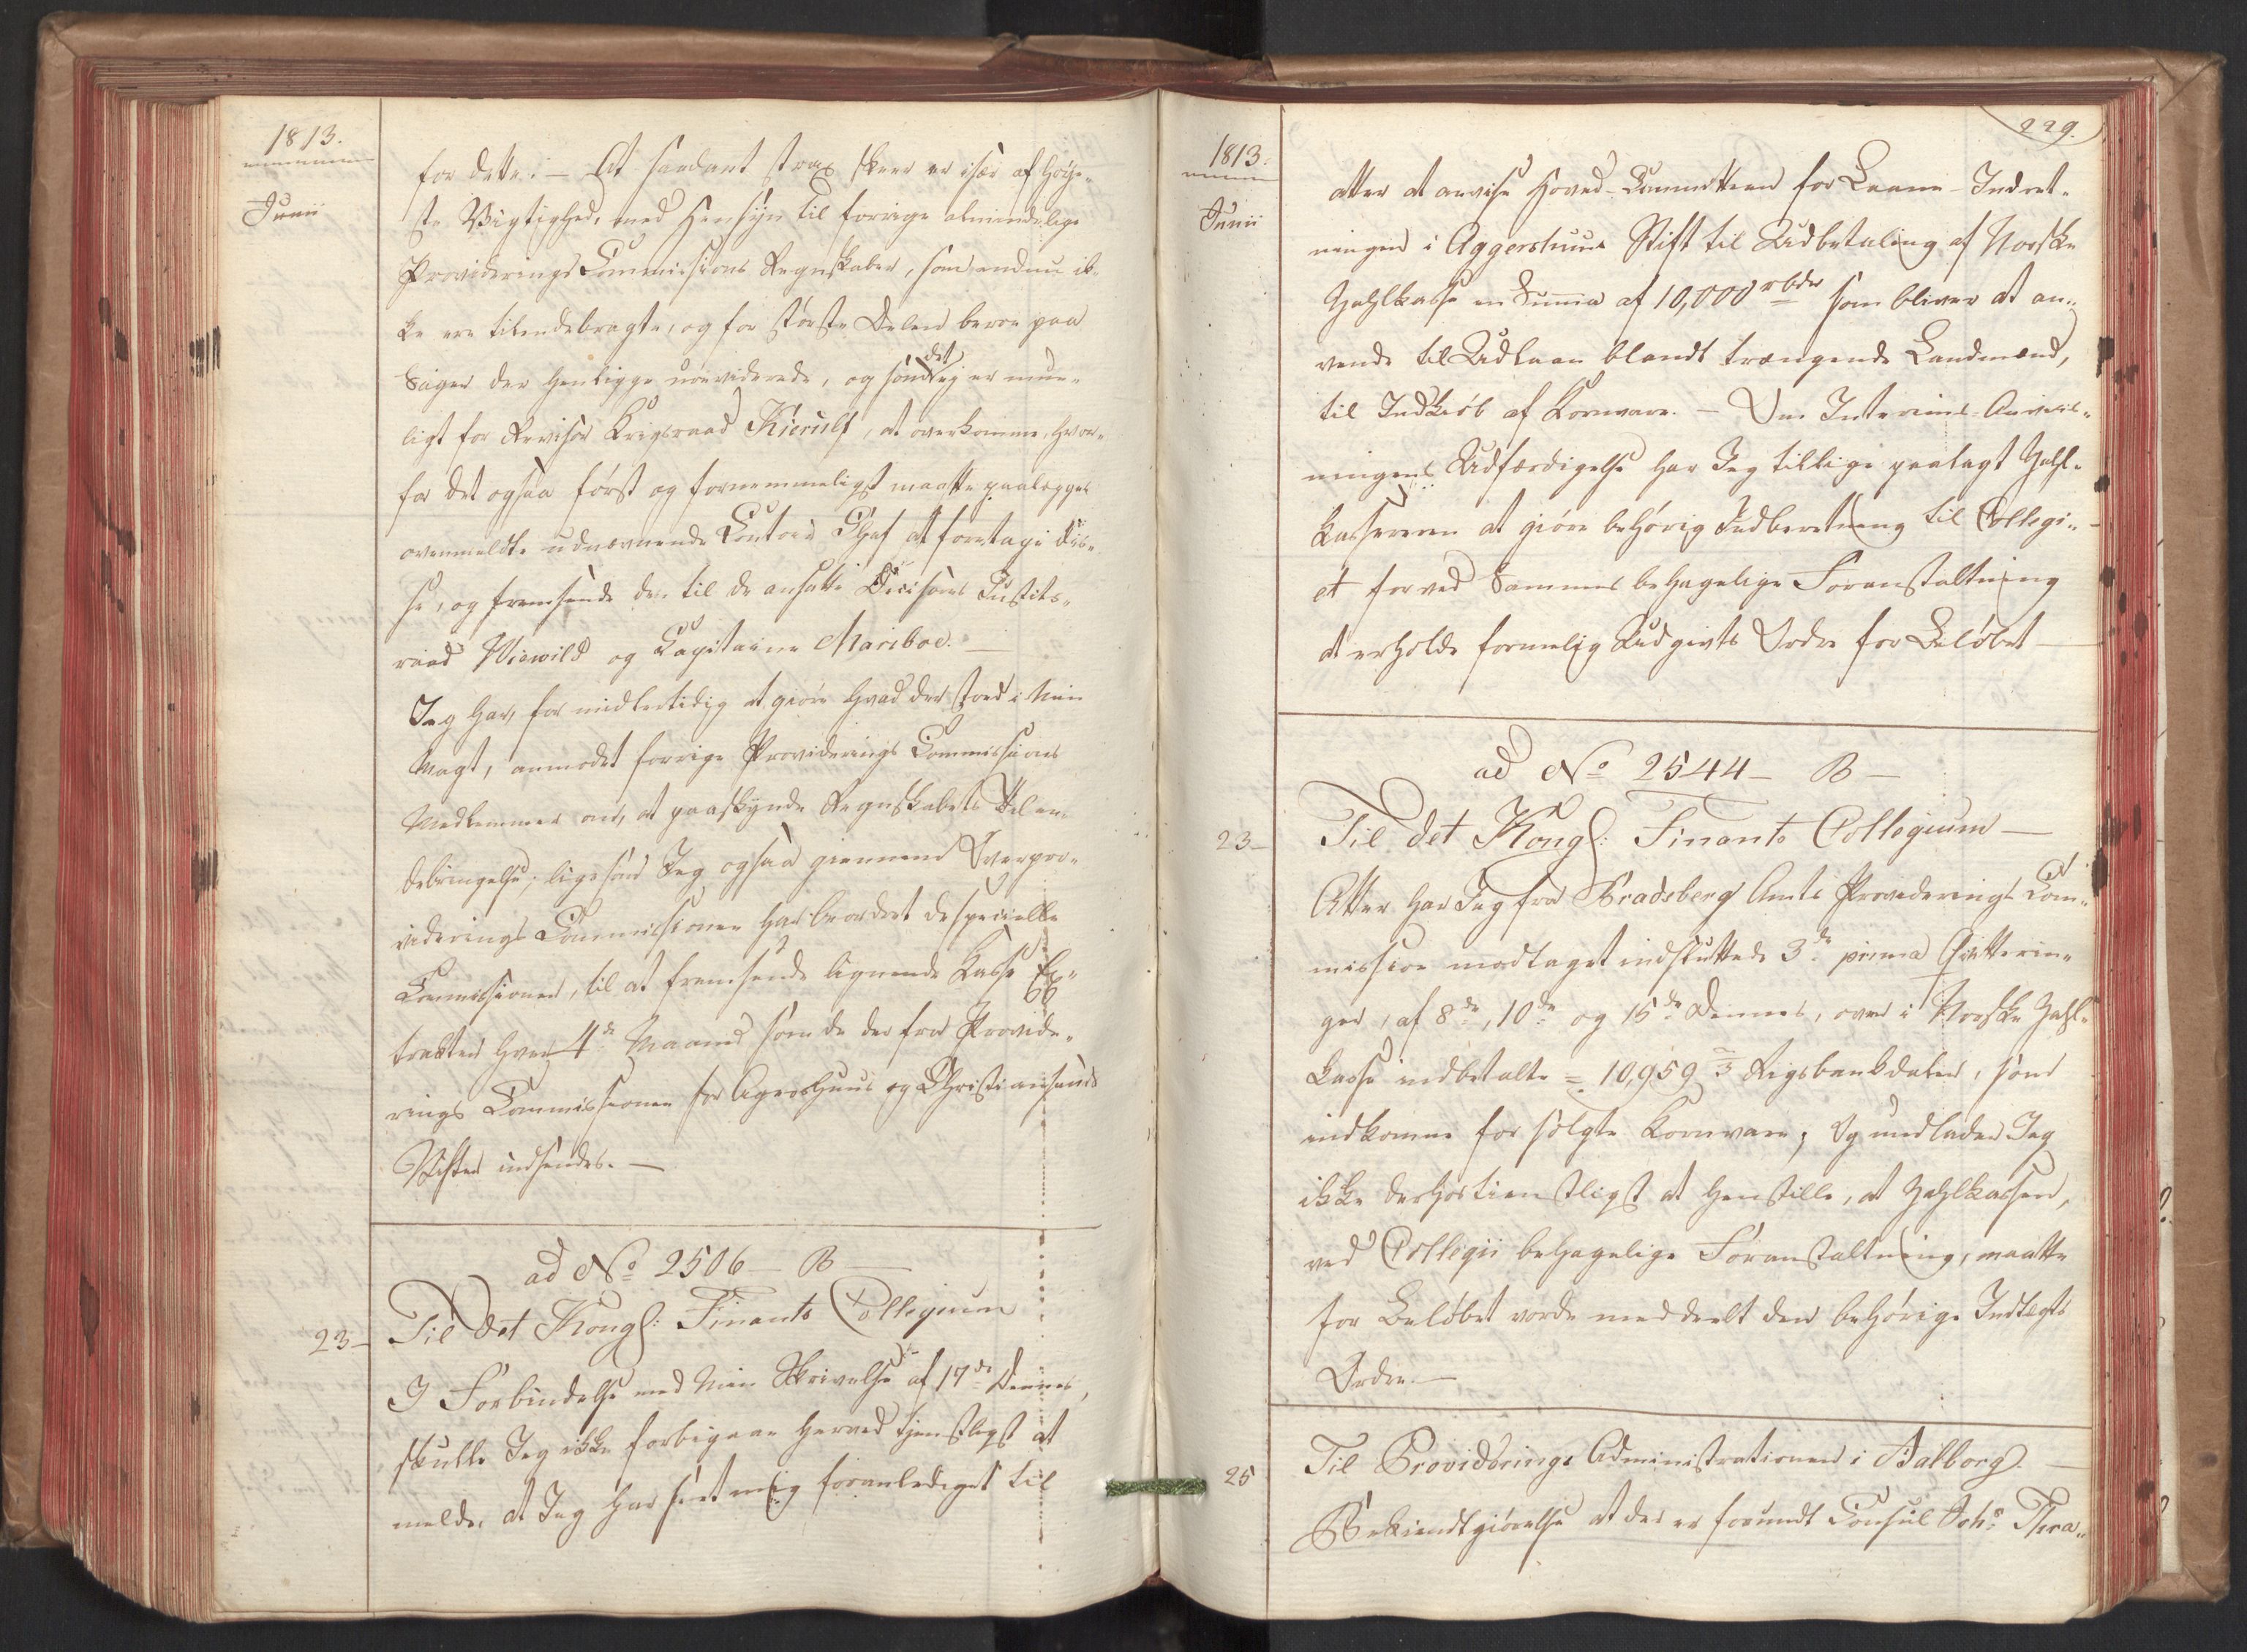 1813.
Junii
for dette. — At saadant strax skeer er især af høye-
ste Vigtighed, med Hensyn til forrige almindelige
Provideringscommissions Regnskaber, som endnu ik-
ke ere tilendebragte, og for største Delen beroe paa
Sager der henligge ureviderede, og som det ej er mue-
ligt for Revisor Krigsraad Kierulf, at overkomme, hvor-
for det ogsaa først og fornemmeligst maatte paalægges
ovenmeldte udnævnende Contoir Chef at foretage dis-
se, og fremsende dem til de ansatte Decisorer Justits-
raad Wiewild og Capitaine Mariboe. —
Jeg har, for midlertidig at giøre hvad der stod i Min
Magt, anmodet forrige Provideringscommissions
Medlemmer om, at paaskynde Regnskabets Tilen-
debringelse; ligesom Jeg ogsaa giennem Overpro-
viderings Commissionen har beordret de specielle
Commissioner, til at fremsende lignende Kasse Ex-
tracter hver 4de Maaned som de der fra Provide-
rings Commissionen for Agershuus og Christiansands
Stifter indsendes. —
ad No 2506 — B —
23 — Til det Kongl: Finants Collegium
I Forbindelse med Min Skrivelse af 17de Dennes,
skulle Jeg ikke forbigaae herved tjenstligst at
melde, at Jeg har seet mig foranlediget til
229.
1813.
Junii
atter at anvise Hoved-Committeen for Laane-Indret-
ningen i Aggershuus Stift til Udbetaling af Norske
Zahlkasse en Summa af 10,000 rbdr som bliver at an-
vende til Udlaan blandt trængende Landmænd,
til Indkiøb af Kornvare. — Om Interims-Anviis-
ningens Udfærdigelse har Jeg tillige paalagt Zahl-
kassereren at giøre behørig Indberetning til Collegi-
et for ved Sammes behagelige Foranstaltning
at erholde formelig Udgivts Ordre for Beløbet —
ad No 2544 — B —
23 — Til det Kongl: Finants Collegium —
Atter har Jeg fra Bradsberg Amts Providerings Com-
mission modtaget indsluttede 3de prima Qvitterin-
ger, af 8de, 10de og 15de Dennes, over i Norske Zahl-
kasse indbetalte = 10,959 3 Rigsbankdaler, som
indkomne for solgte Kornvare; Og undlader Jeg
ikke derhos tienstligst at henstille, at Zahlkassen,
ved Collegii behagelige Foranstaltning, maatte
for Beløbet vorde meddeelt den behørige Indtægts
Ordre. —
25 Til Providerings Administrationen i Aalborg. —
Bekiendtgiørelse at der er forundt Consul Johs Thra-